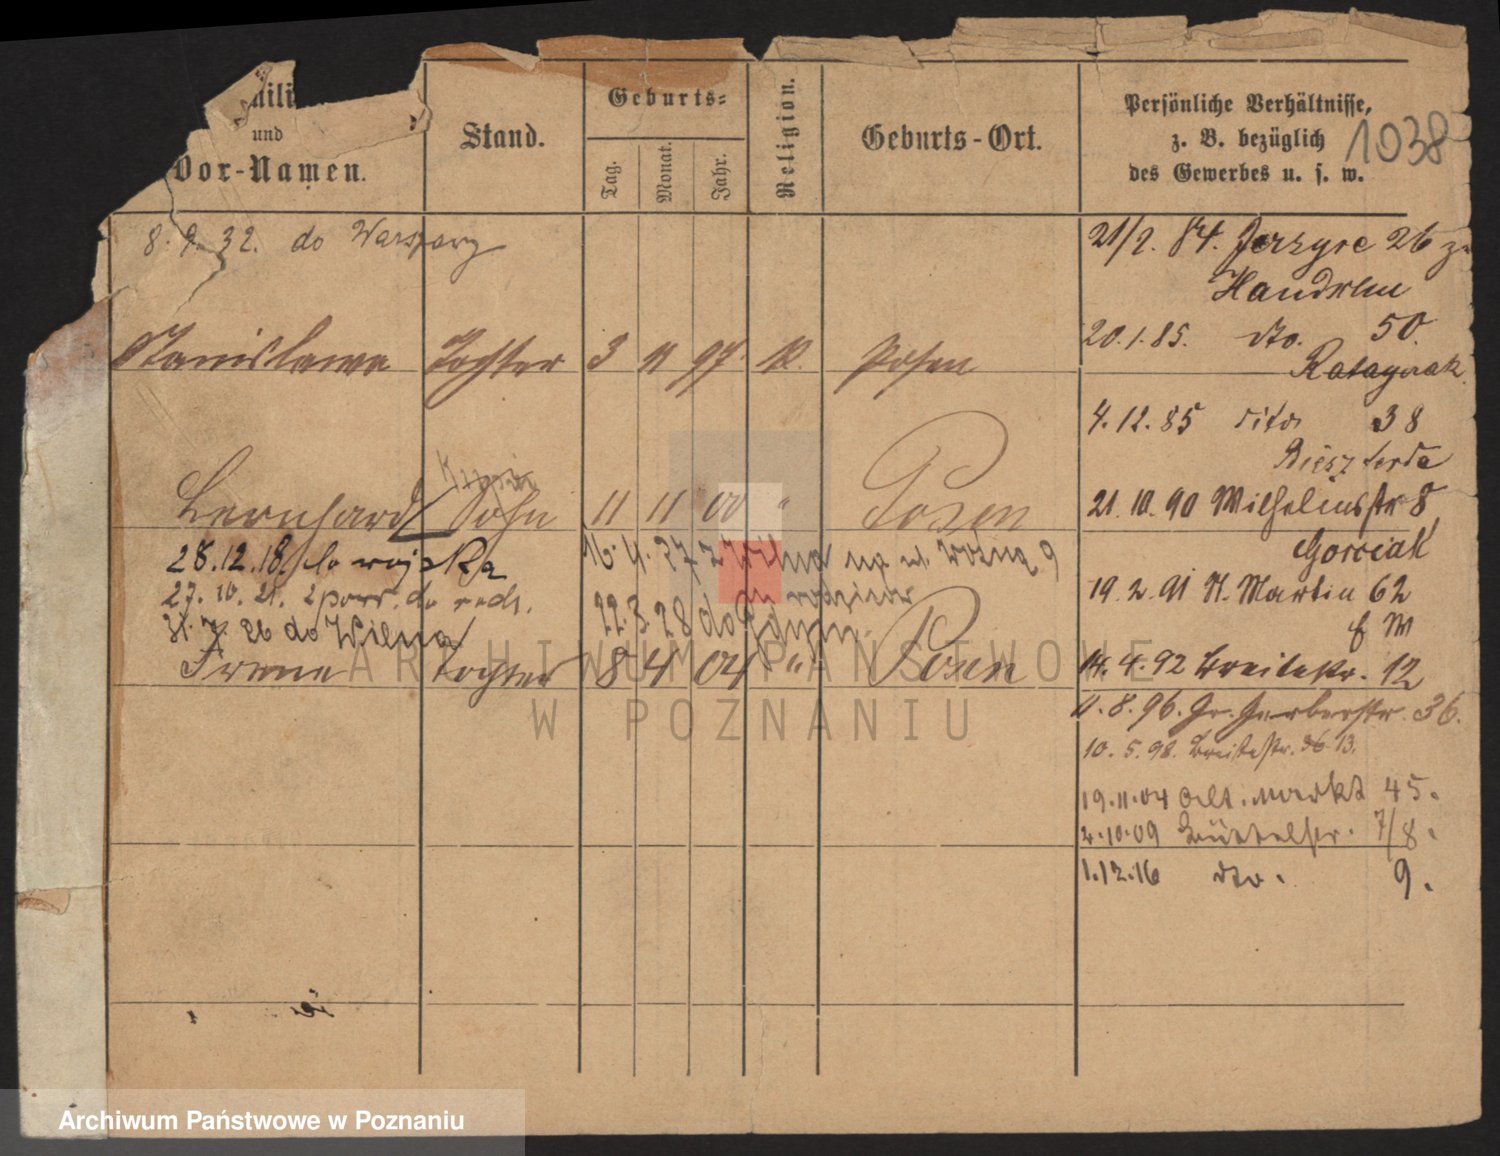 und
Vor-Namen.
Stand.
Geburts-
Tag.
Monat.
Jahr.
Religion.
Geburts-Ort.
Persönliche Verhältnisse,
z. B. bezüglich
des Gewerbes u. s. w.
1038
8. 9. 32. do Warszawy
21/2. 84. 26
20.1.85. dto. 50.
Ratajczak
Stanislawa Tochter 3 11 97. K. Posen
4.12.85 dito 38
Bernhard Sohn 11 11 00 " Posen
21. 10. 90 Wilhelmstr 8
28.12.18. do wojska
16. 4. 27 z Wilna na ul. Wolną 9
19. 2. 91 St. Martin 62
27. 10. 21. z pow. do rodz.
22. 3. 28 do
31. 7. 26 do Wilna
Irene Tochter 8 4 04 " Posen
14. 4. 92 Breitestr. 12
11. 8. 96. Gr. Gerberstr. 36.
10. 5. 98. Breitestr. 13.
19.11.04 Alt. Markt 45.
2.10.09 Büttelstr. 7/8.
1.12.16 dto. 9.
ARCHIWUM PAŃSTWOWE
W POZNANIU
Archiwum Państwowe w Poznaniu